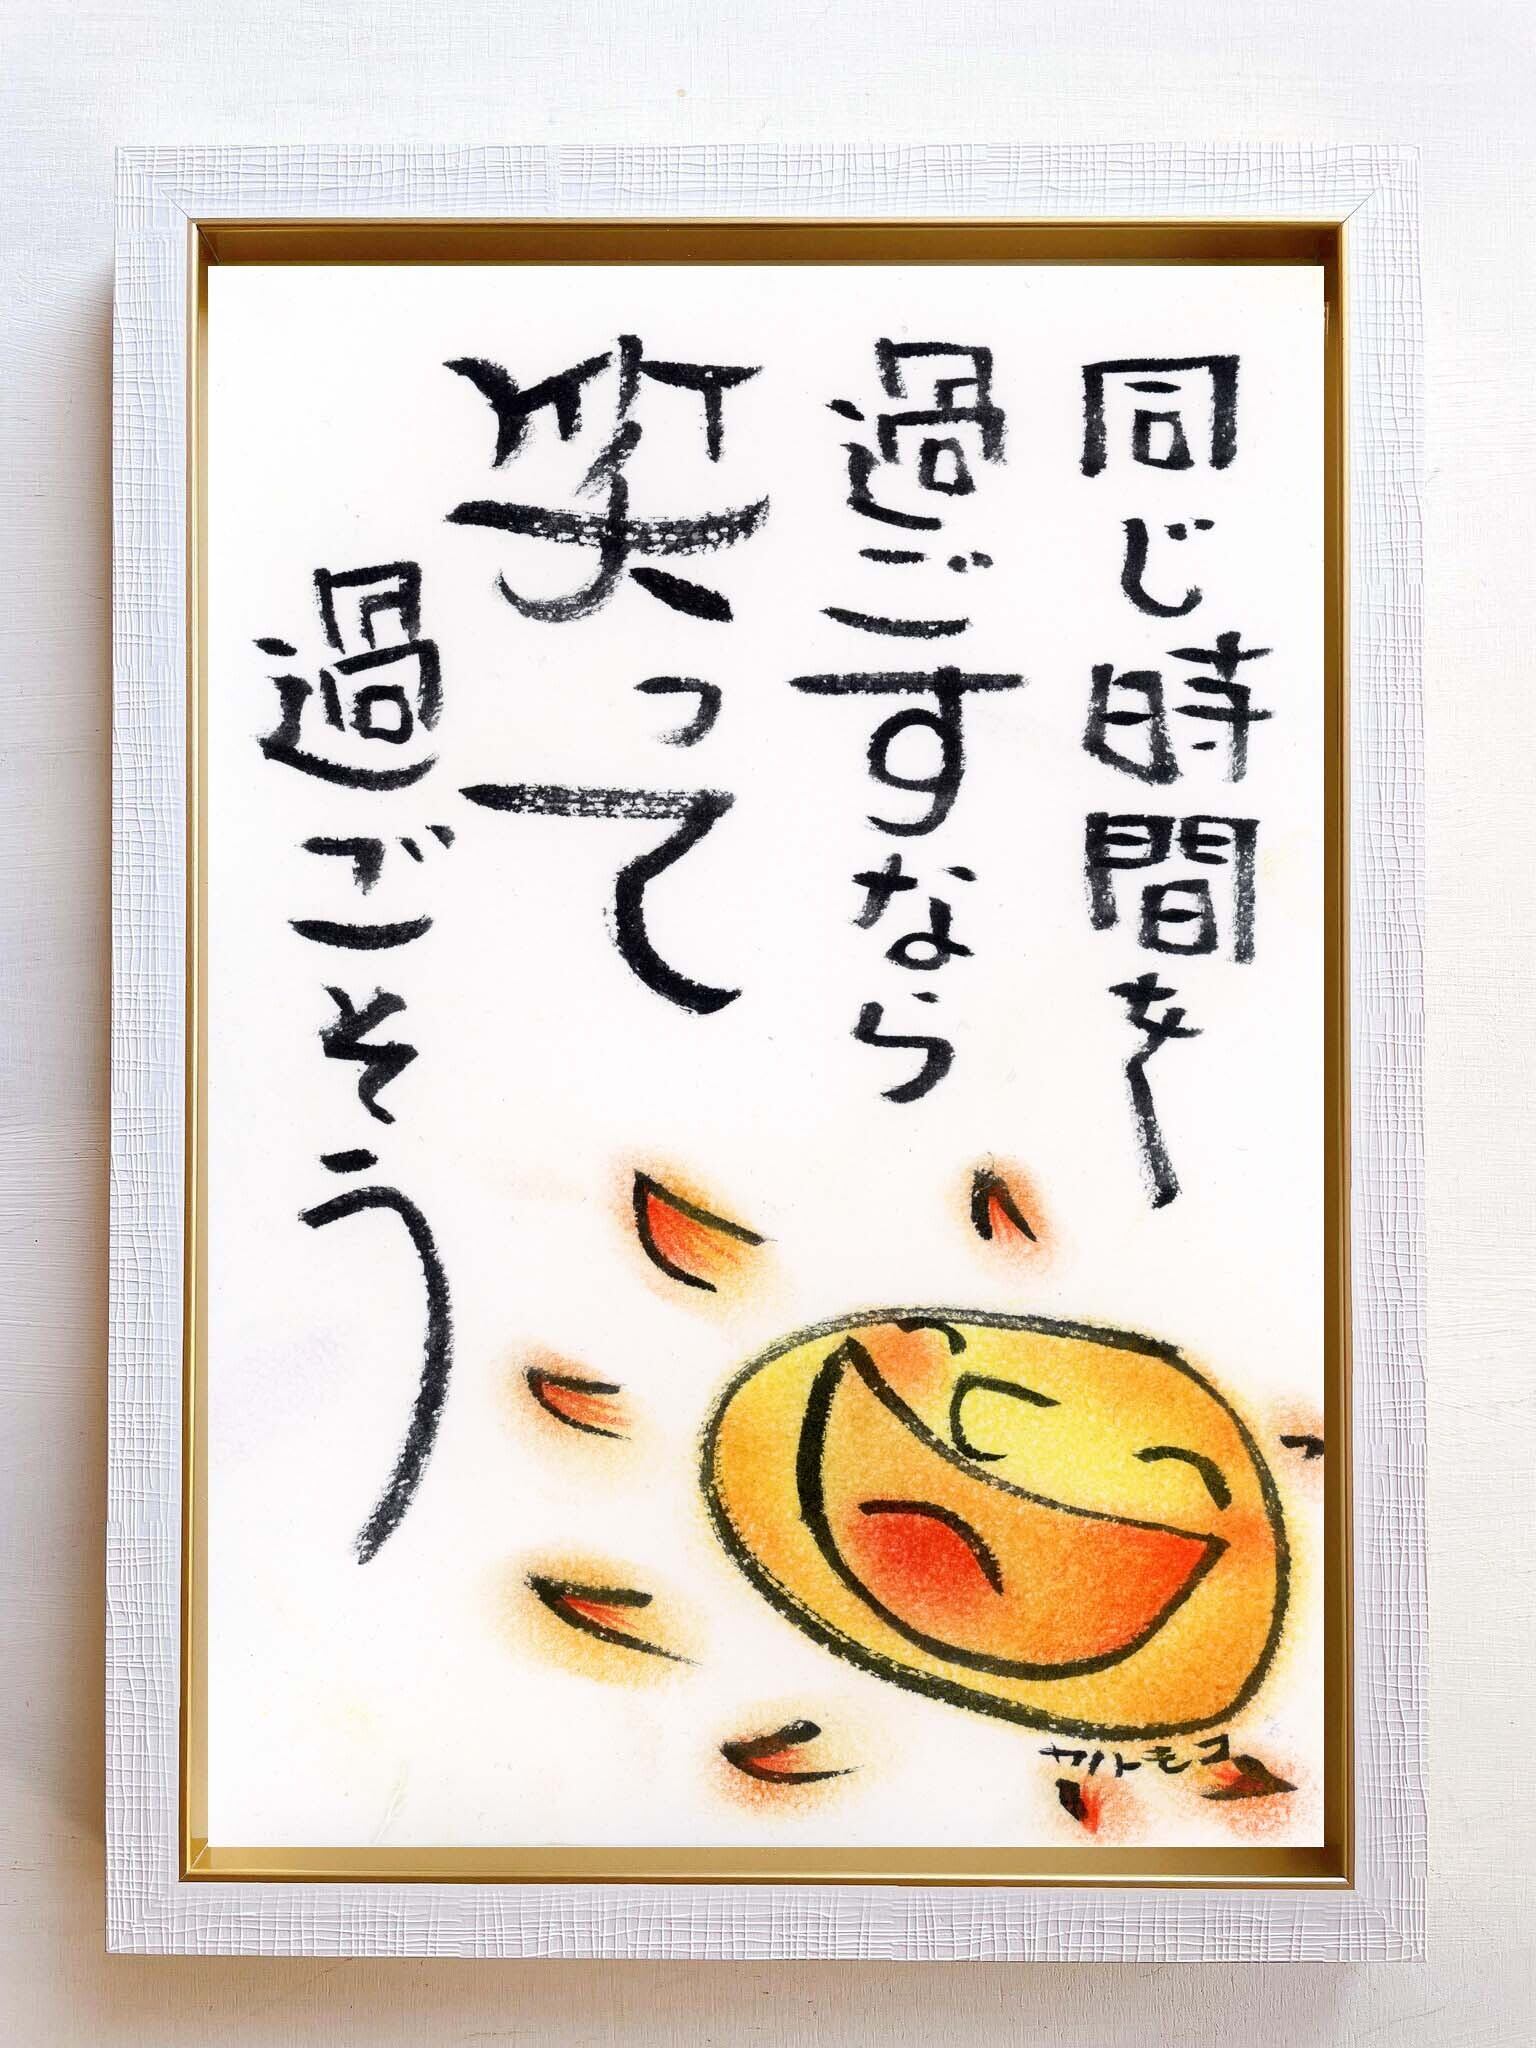 同じ時間を
過ごすなら
笑って
過ごそう
ヤノトモコ